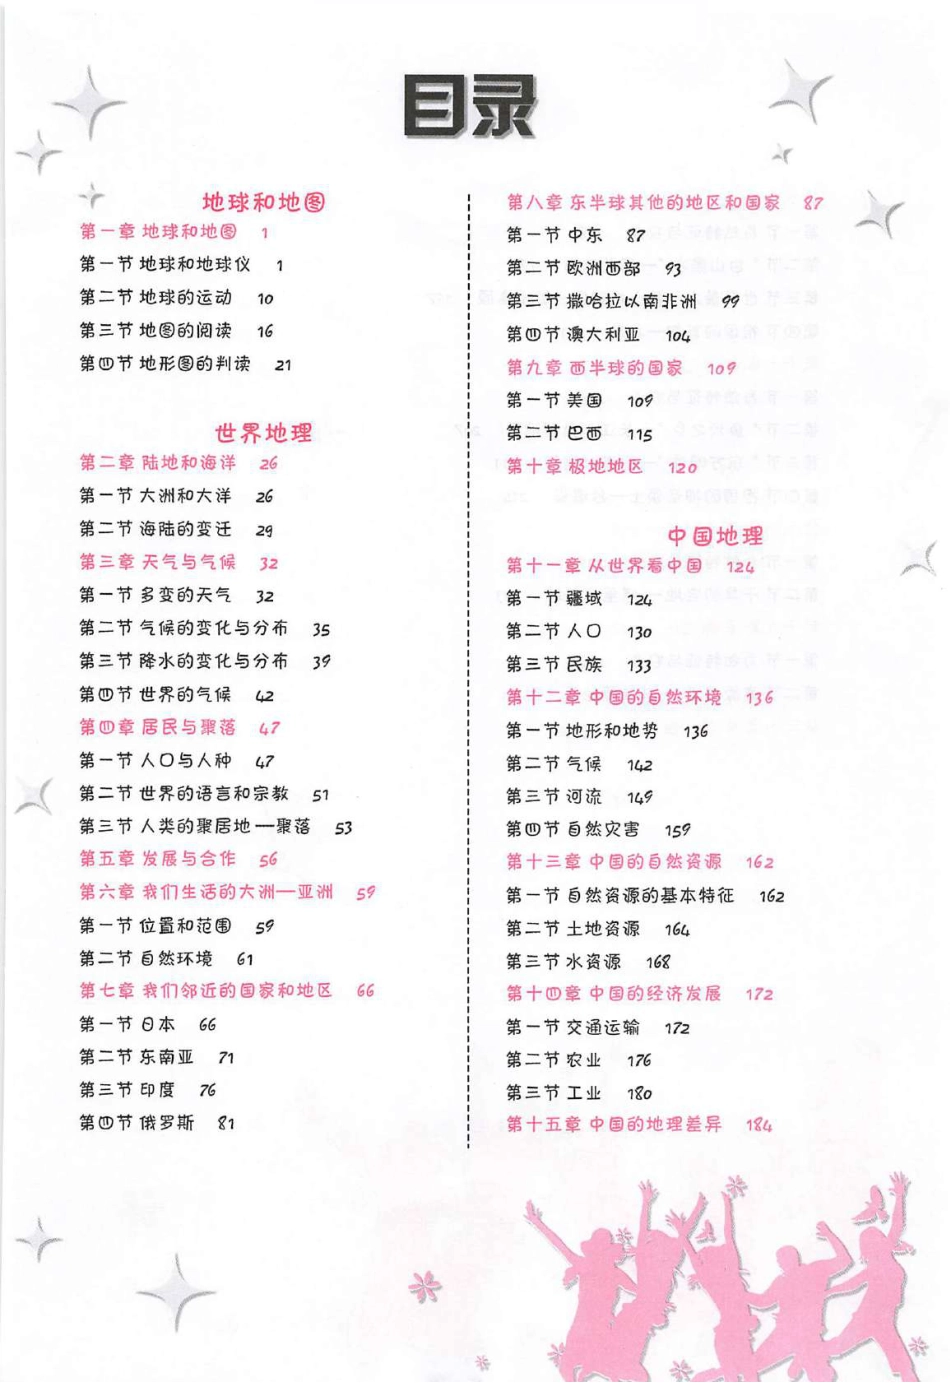 目录
地球和地图
第一章 地球和地图 1
第一节 地球和地球仪 1
第二节 地球的运动 10
第三节 地图的阅读 16
第四节 地形图的判读 21
世界地理
第二章 陆地和海洋 26
第一节 大洲和大洋 26
第二节 海陆的变迁 29
第三章 天气与气候 32
第一节 多变的天气 32
第二节 气候的变化与分布 35
第三节 降水的变化与分布 39
第四节 世界的气候 42
第四章 居民与聚落 47
第一节 人口与人种 47
第二节 世界的语言和宗教 51
第三节 人类的聚居地—聚落 53
第五章 发展与合作 56
第六章 我们生活的大洲—亚洲 59
第一节 位置和范围 59
第二节 自然环境 61
第七章 我们邻近的国家和地区 66
第一节 日本 66
第二节 东南亚 71
第三节 印度 76
第四节 俄罗斯 81
第八章 东半球其他的地区和国家 87
第一节 中东 87
第二节 欧洲西部 93
第三节 撒哈拉以南非洲 99
第四节 澳大利亚 104
第九章 西半球的国家 109
第一节 美国 109
第二节 巴西 115
第十章 极地地区 120
中国地理
第十一章 从世界看中国 124
第一节 疆域 124
第二节 人口 130
第三节 民族 133
第十二章 中国的自然环境 136
第一节 地形和地势 136
第二节 气候 142
第三节 河流 149
第四节 自然灾害 159
第十三章 中国的自然资源 162
第一节 自然资源的基本特征 162
第二节 土地资源 164
第三节 水资源 168
第十四章 中国的经济发展 172
第一节 交通运输 172
第二节 农业 176
第三节 工业 180
第十五章 中国的地理差异 184